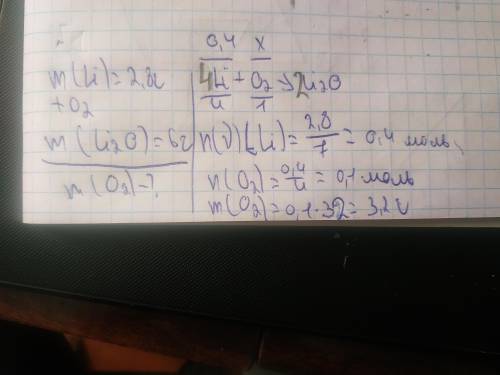 m(Li)=2,8г
+O2
m(Li2O)=6г
m(O2)-?
0,4 x
4Li + O2 → 2Li2O
4 1
n(ν)(Li)=2,8/7=0,4 моль
n(O2)=0,4/4=0,1 моль
m(O2)=0,1·32=3,2г